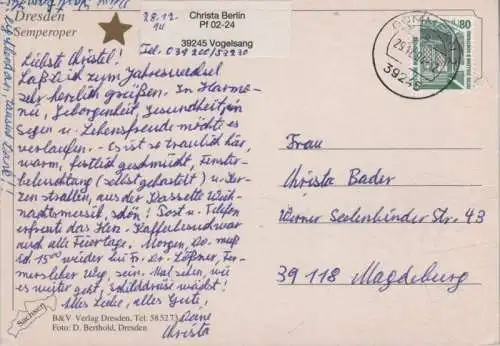 Dresden
Semperoper
28.12.
94
Christa Berlin
Pf 02-24
39245 Vogelsang
Tel. 039200/52230
80
39245
Liebste Christel!
Laß Dich zum Jahreswechsel
sehr herzlich grüßen. In Harmo-
nie, Geborgenheit, Gesundheit, in
Segen u. Lebensfreude möchte es
verlaufen. – Es ist so traulich hier,
warm, festlich geschmückt, Fenster-
beleuchtung (selbst gebastelt) u. Ker-
zen strahlen, aus der Kassette Weih-
nachtsmusik, schön! Post u. Telefon
erfreut das Herz. Kaffeebesuch war
auch alle Feiertage. Morgen, Do. muß
ich 15.00 wieder bei Fr. Dr. Lößner, Fer-
mersleber Weg, sein. Mal sehen, wie
es weiter geht, Schilddrüse wächst!
Alles Liebe, alles Gute,
Deine
Christa
Frau
Christa Bader
Werner Seelenbinder Str. 43
39 118 Magdeburg
Sachsen
B&V Verlag Dresden, Tel: 58 52 73
Foto: D. Berthold, Dresden